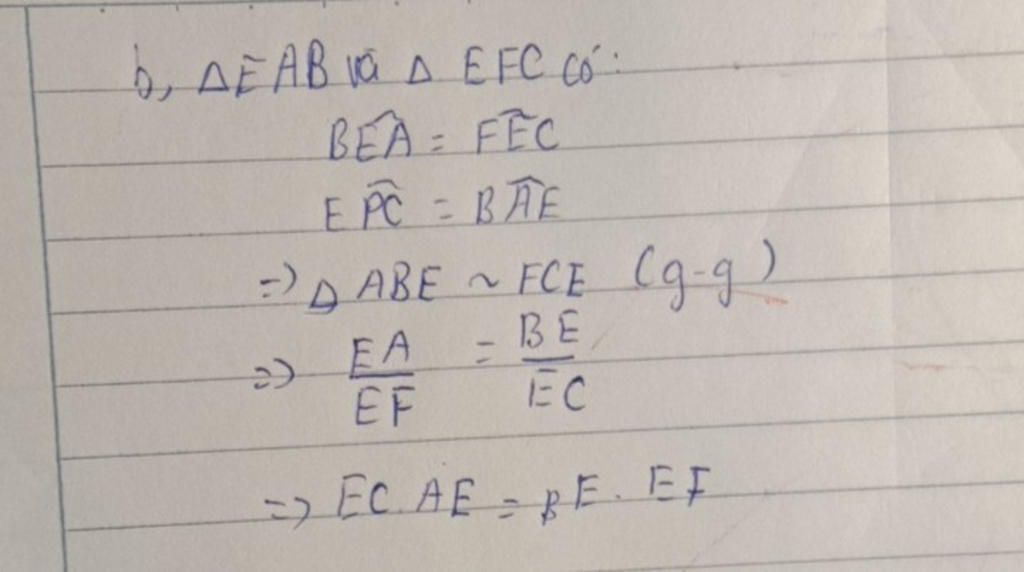 b, ΔEAB và Δ EFC có:
BÊA = FÊC
EP̂C = BÂE
=> Δ ABE ~ FCE (g-g)
=> EA/EF = BE/EC
=> EC.AE = BE.EF